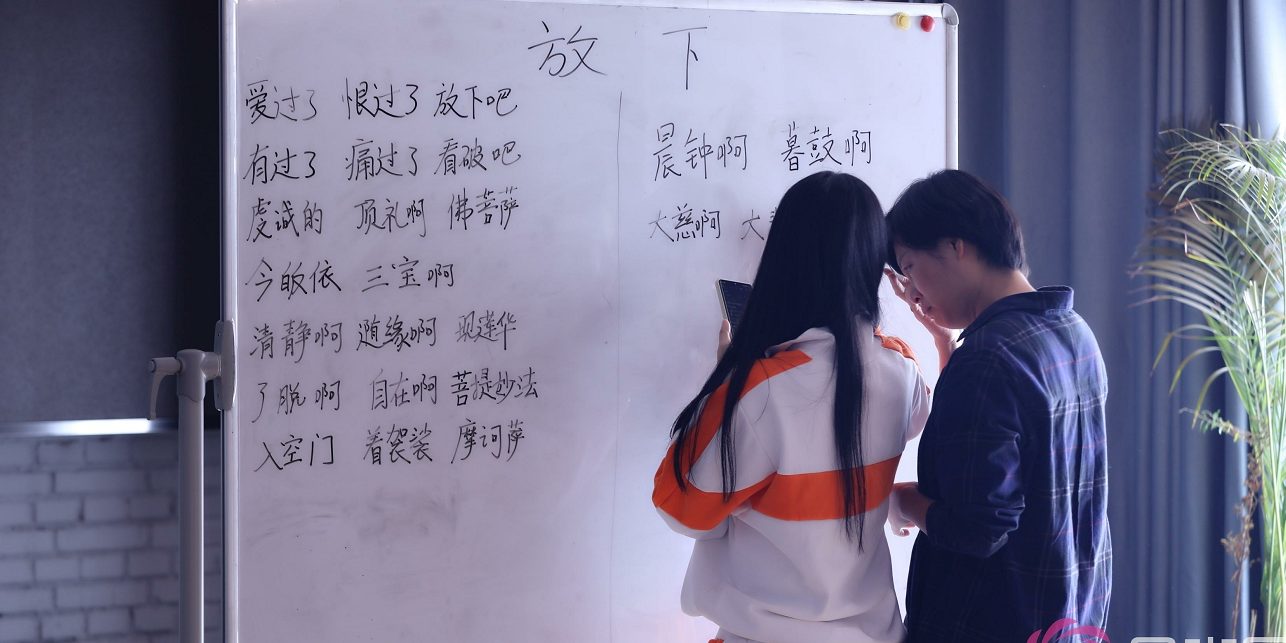 放 下
爱过了 恨过了 放下吧
有过了 痛过了 看破吧
虔诚的 顶礼啊 佛菩萨
今皈依 三宝啊
清静啊 随缘啊 现莲华
了脱啊 自在啊 菩提妙法
入空门 着袈裟 摩诃萨
晨钟啊 暮鼓啊
大慈啊 大